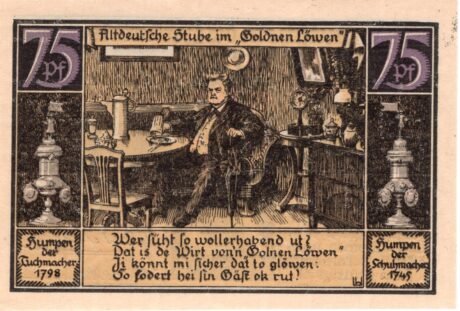 Altdeutsche Stube im „Goldnen Löwen"
75 Pf
75 Pf
Humpen
der
Tuchmacher
1798
Wer süht so wollerhabend ut?
Dat is de Wirt von'n Golnen Löwen"
Ji könnt mi sicher dat to glöwen:
So fodert hei sin Gäst ok rut!
Humpen
der
Schuhmacher
1745